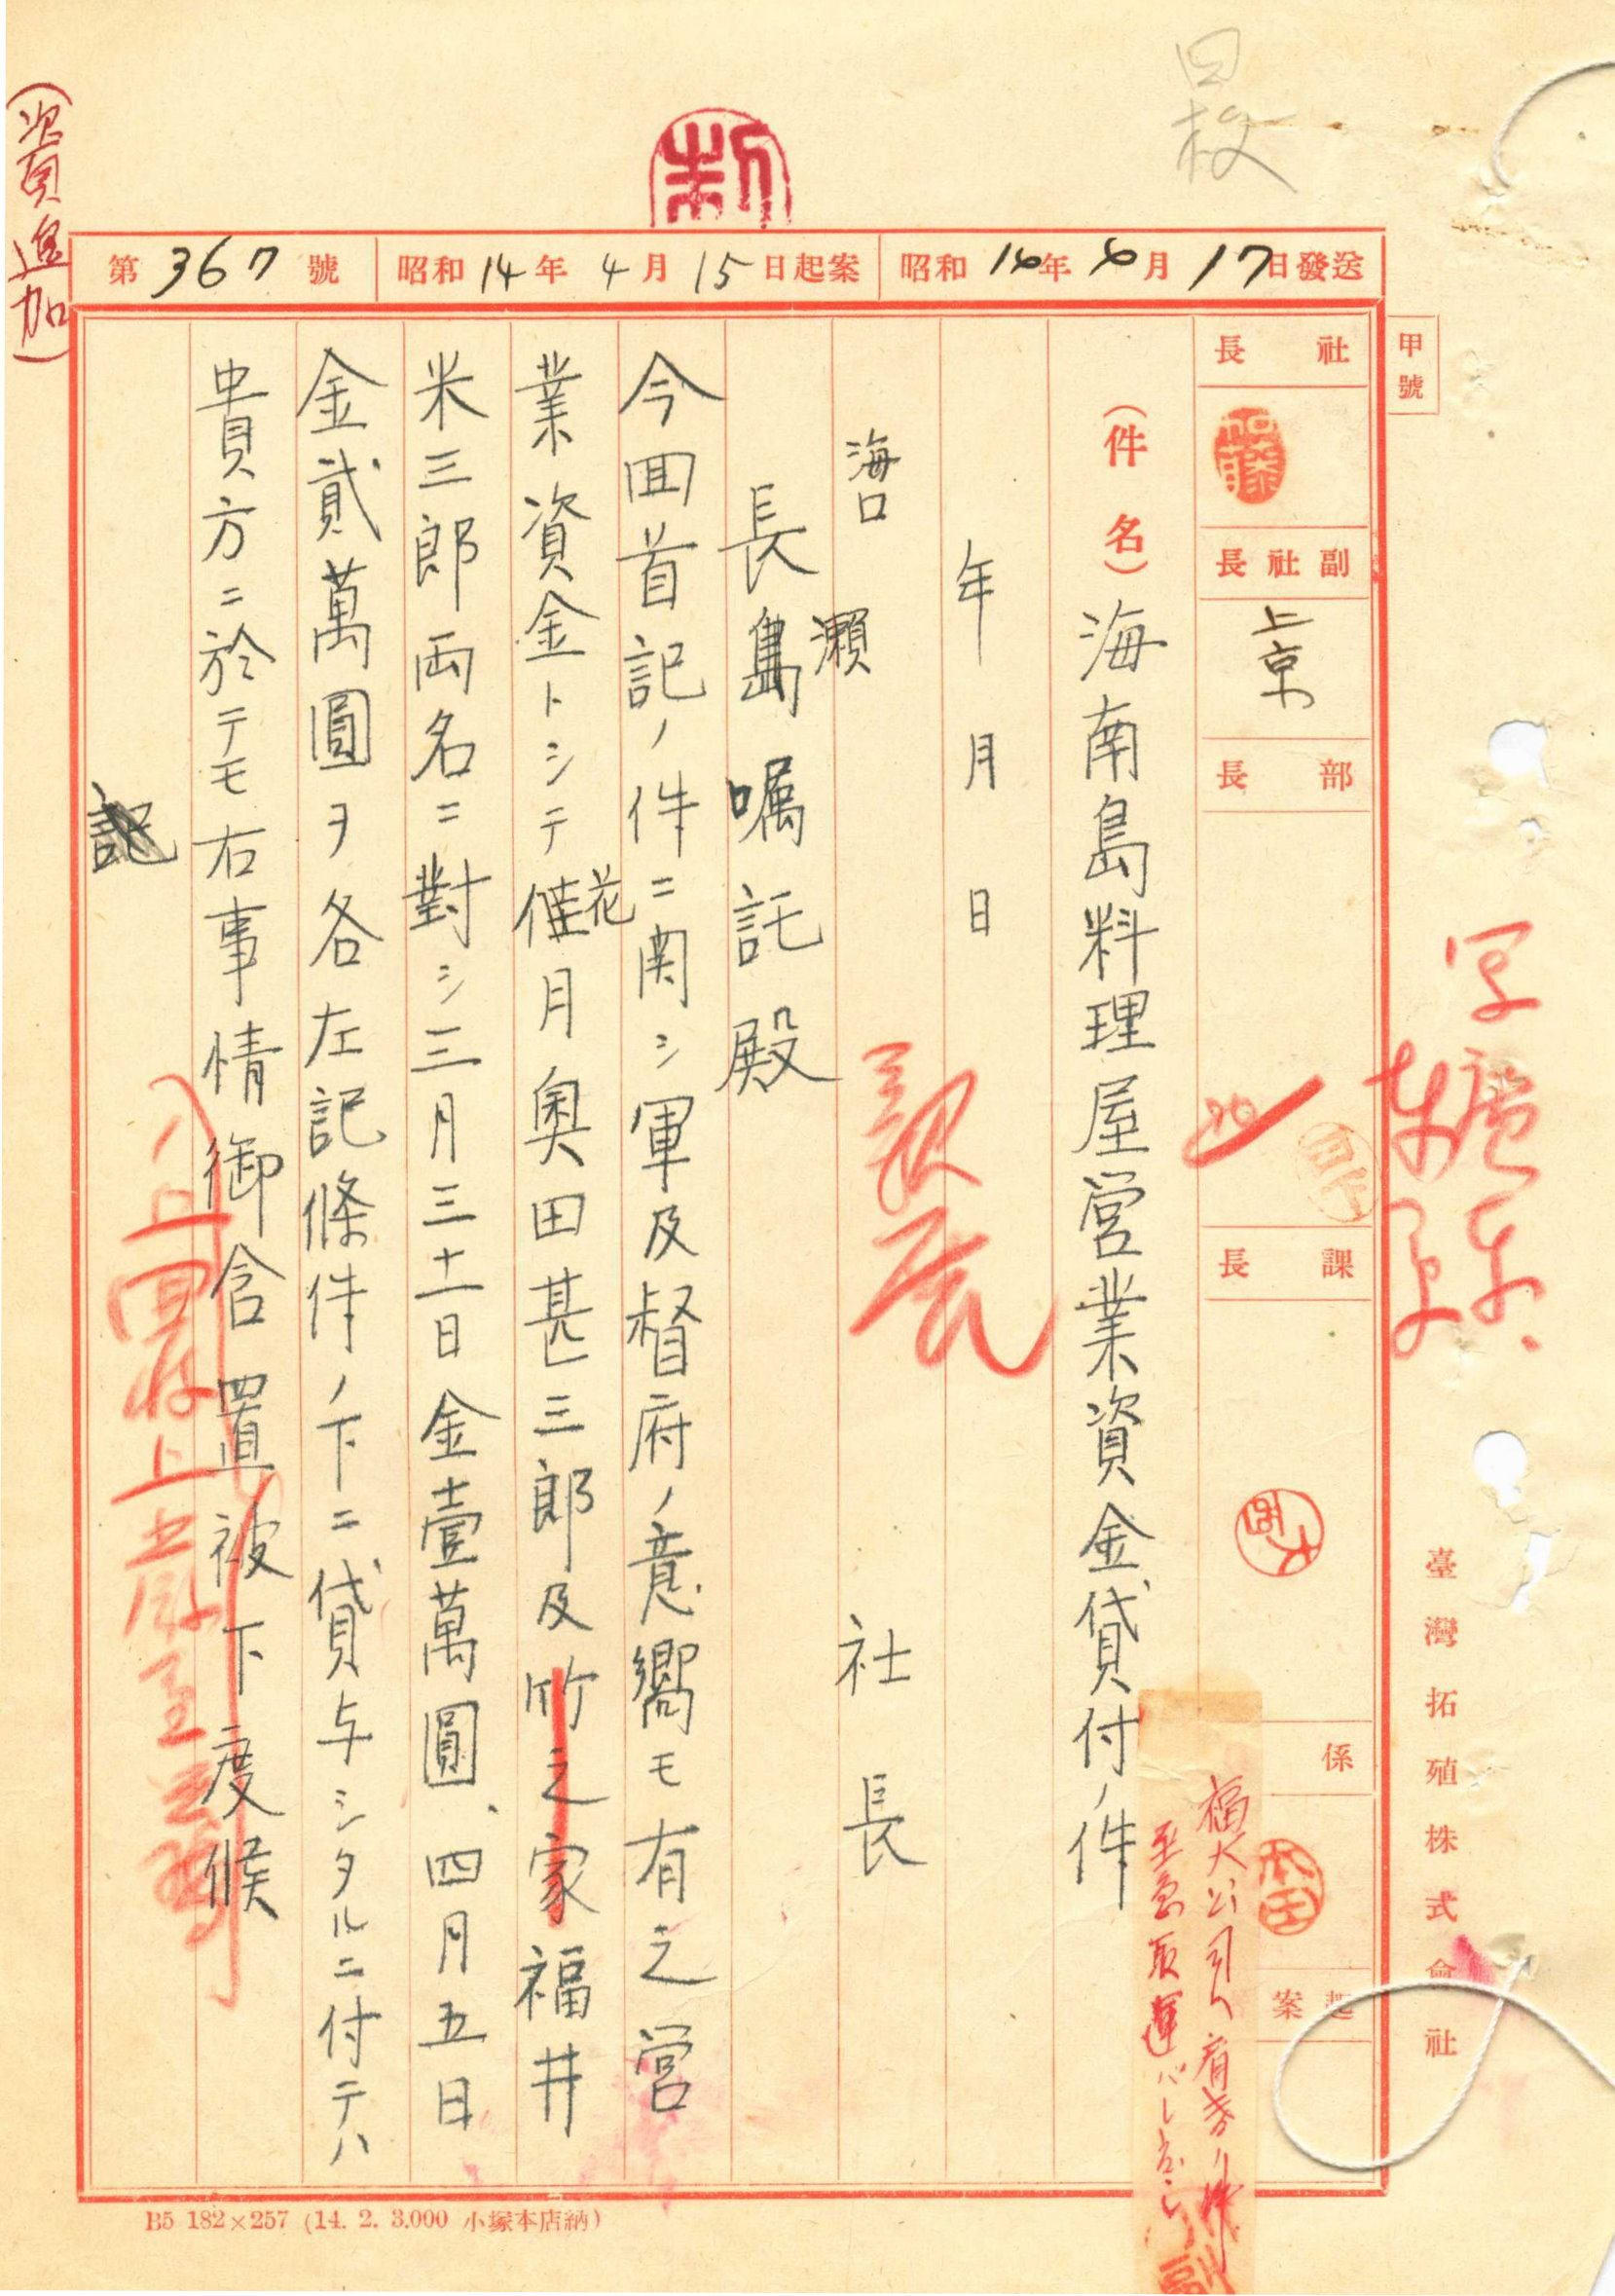 四枚
第367號
昭和14年4月15日起案
昭和14年4月17日發送
甲號
社長
副社長
上京
部長
課長
係
起案
臺灣拓殖株式會社
福大公司
至急取運
(件名)海南島料理屋営業資金貸付ノ件
年月日
社長
海口
瀬
長島嘱託殿
今回首記ノ件ニ関シ軍及督府ノ意嚮モ有之営
業資金トシテ
花
月奥田甚三郎及竹之家福井
米三郎両名ニ對シ三月三十一日金壹萬圓、四月五日
金貳萬圓ヲ各左記條件ノ下ニ貸与シタルニ付テハ
貴方ニ於テモ右事情御含置被下度候
記
(資追加)
B5 182×257 (14. 2. 3.000 小塚本店納)